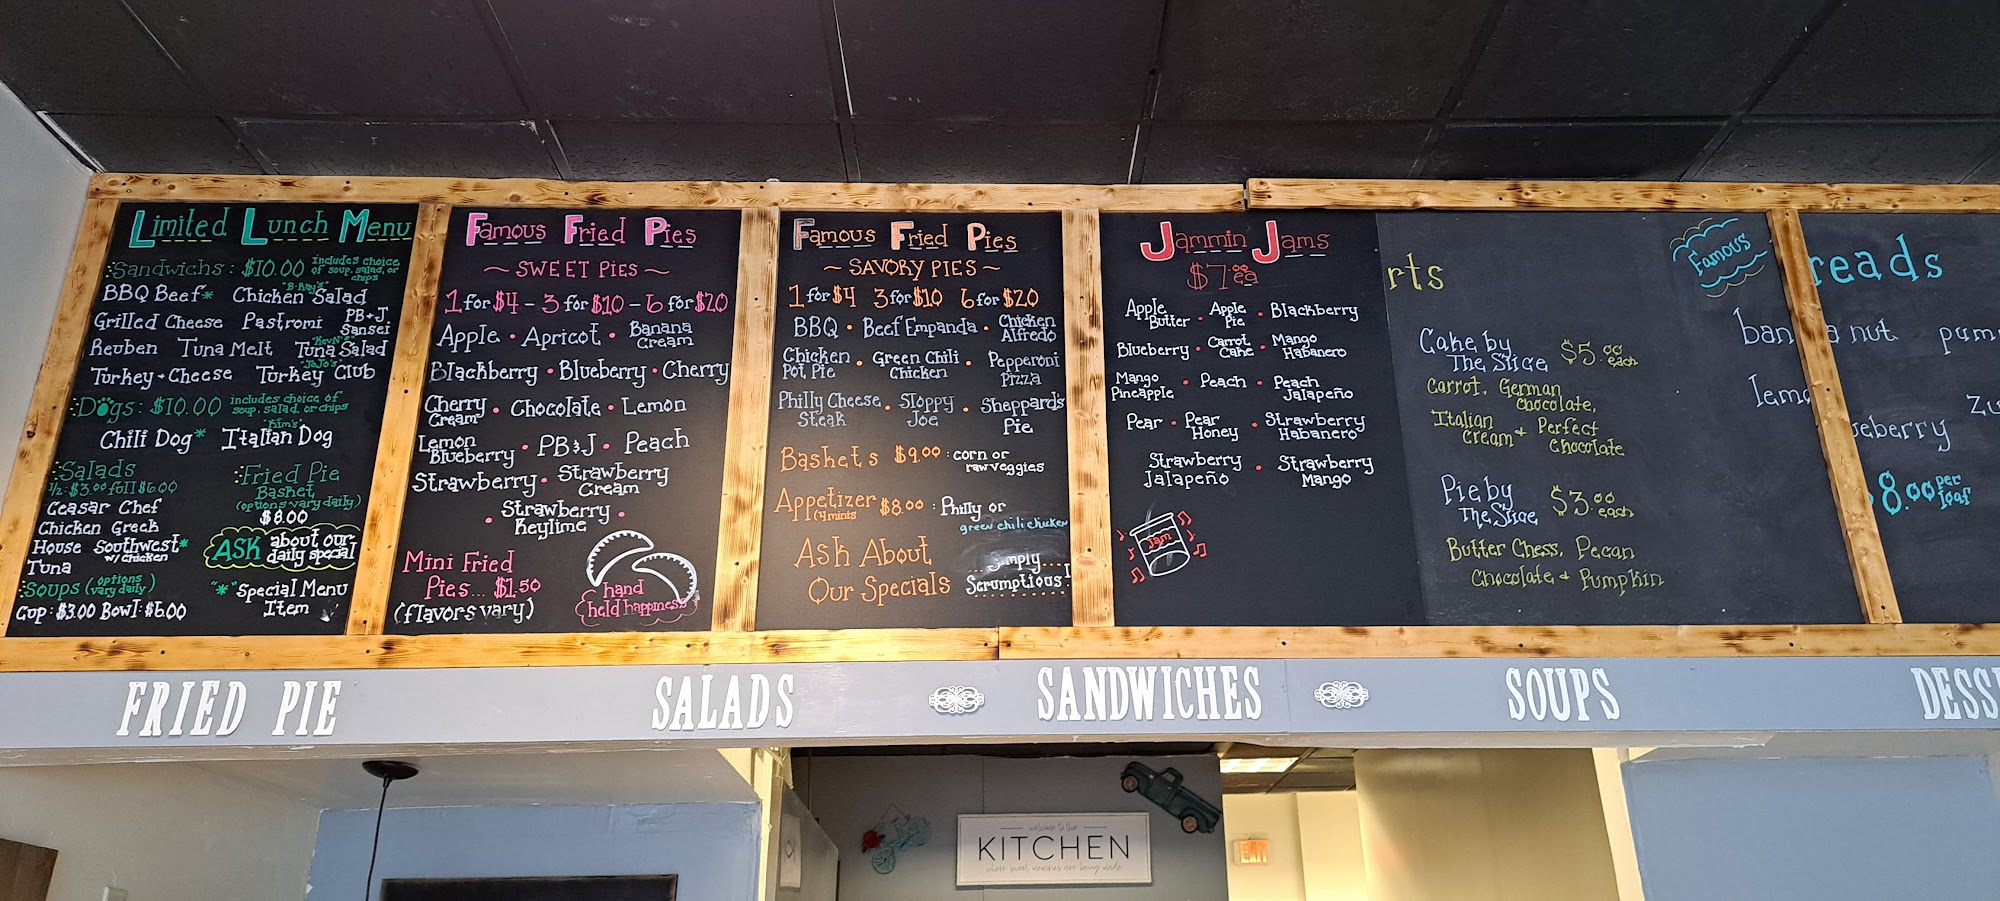 Limited Lunch Menu
Sandwichs: $10.00 includes choice of soup, salad, or chips
BBQ Beef* "B-Ray's" Chicken Salad
Grilled Cheese Pastromi PB+J, Sansei
Reuben Tuna Melt "Kevn's" Tuna Salad
Turkey+Cheese "JoJo's" Turkey Club
Dogs: $10.00 includes choice of soup, salad, or chips
Chili Dog* "Kim's" Italian Dog
Salads
1/2: $3.00 full $6.00
Ceasar Chef
Chicken Greek
House Southwest* w/chicken
Tuna
Soups (options vary daily)
Cup: $3.00 Bowl: $6.00
Fried Pie
Basket
(options vary daily)
$8.00
ASK about our daily special
"*" Special Menu
Item
Famous Fried Pies
~ SWEET PIES ~
1 for $4 - 3 for $10 - 6 for $20
Apple • Apricot • Banana Cream
Blackberry • Blueberry • Cherry
Cherry Cream • Chocolate • Lemon
Lemon Blueberry • PB&J • Peach
Strawberry • Strawberry Cream
• Strawberry Keylime •
Mini Fried
Pies... $1.50
(flavors vary)
hand
held happiness
Famous Fried Pies
~ SAVORY PIES ~
1 for $4 3 for $10 6 for $20
BBQ • Beef Empanda • Chicken Alfredo
Chicken Pot Pie • Green Chili Chicken • Pepperoni Pizza
Philly Cheese Steak • Sloppy Joe • Sheppard's Pie
Baskets $9.00: corn or raw veggies
Appetizer (4 minis $8.00: Philly or
green chili chicken
Ask About
Our Specials
Simply
Scrumptious!
Jammin' Jams
$7.00 ea
Apple Butter • Apple Pie • Blackberry
Blueberry • Carrot Cake • Mango Habanero
Mango Pineapple • Peach • Peach Jalapeño
Pear • Pear Honey • Strawberry Habanero
Strawberry Jalapeño • Strawberry Mango
Jam
rts
Cake by
The Slice $5.00 each
Carrot, German
Chocolate,
Italian
Cream + Perfect
Chocolate
Pie by
The Slice $3.00 each
Butter Chess, Pecan
Chocolate & Pumpkin
Famous
reads
ban a nut pum
lem
zu
ueberry
8.00 per loaf
FRIED PIE SALADS SANDWICHES SOUPS DESS
welcome to the
KITCHEN
where sweet memories are being made
EXIT